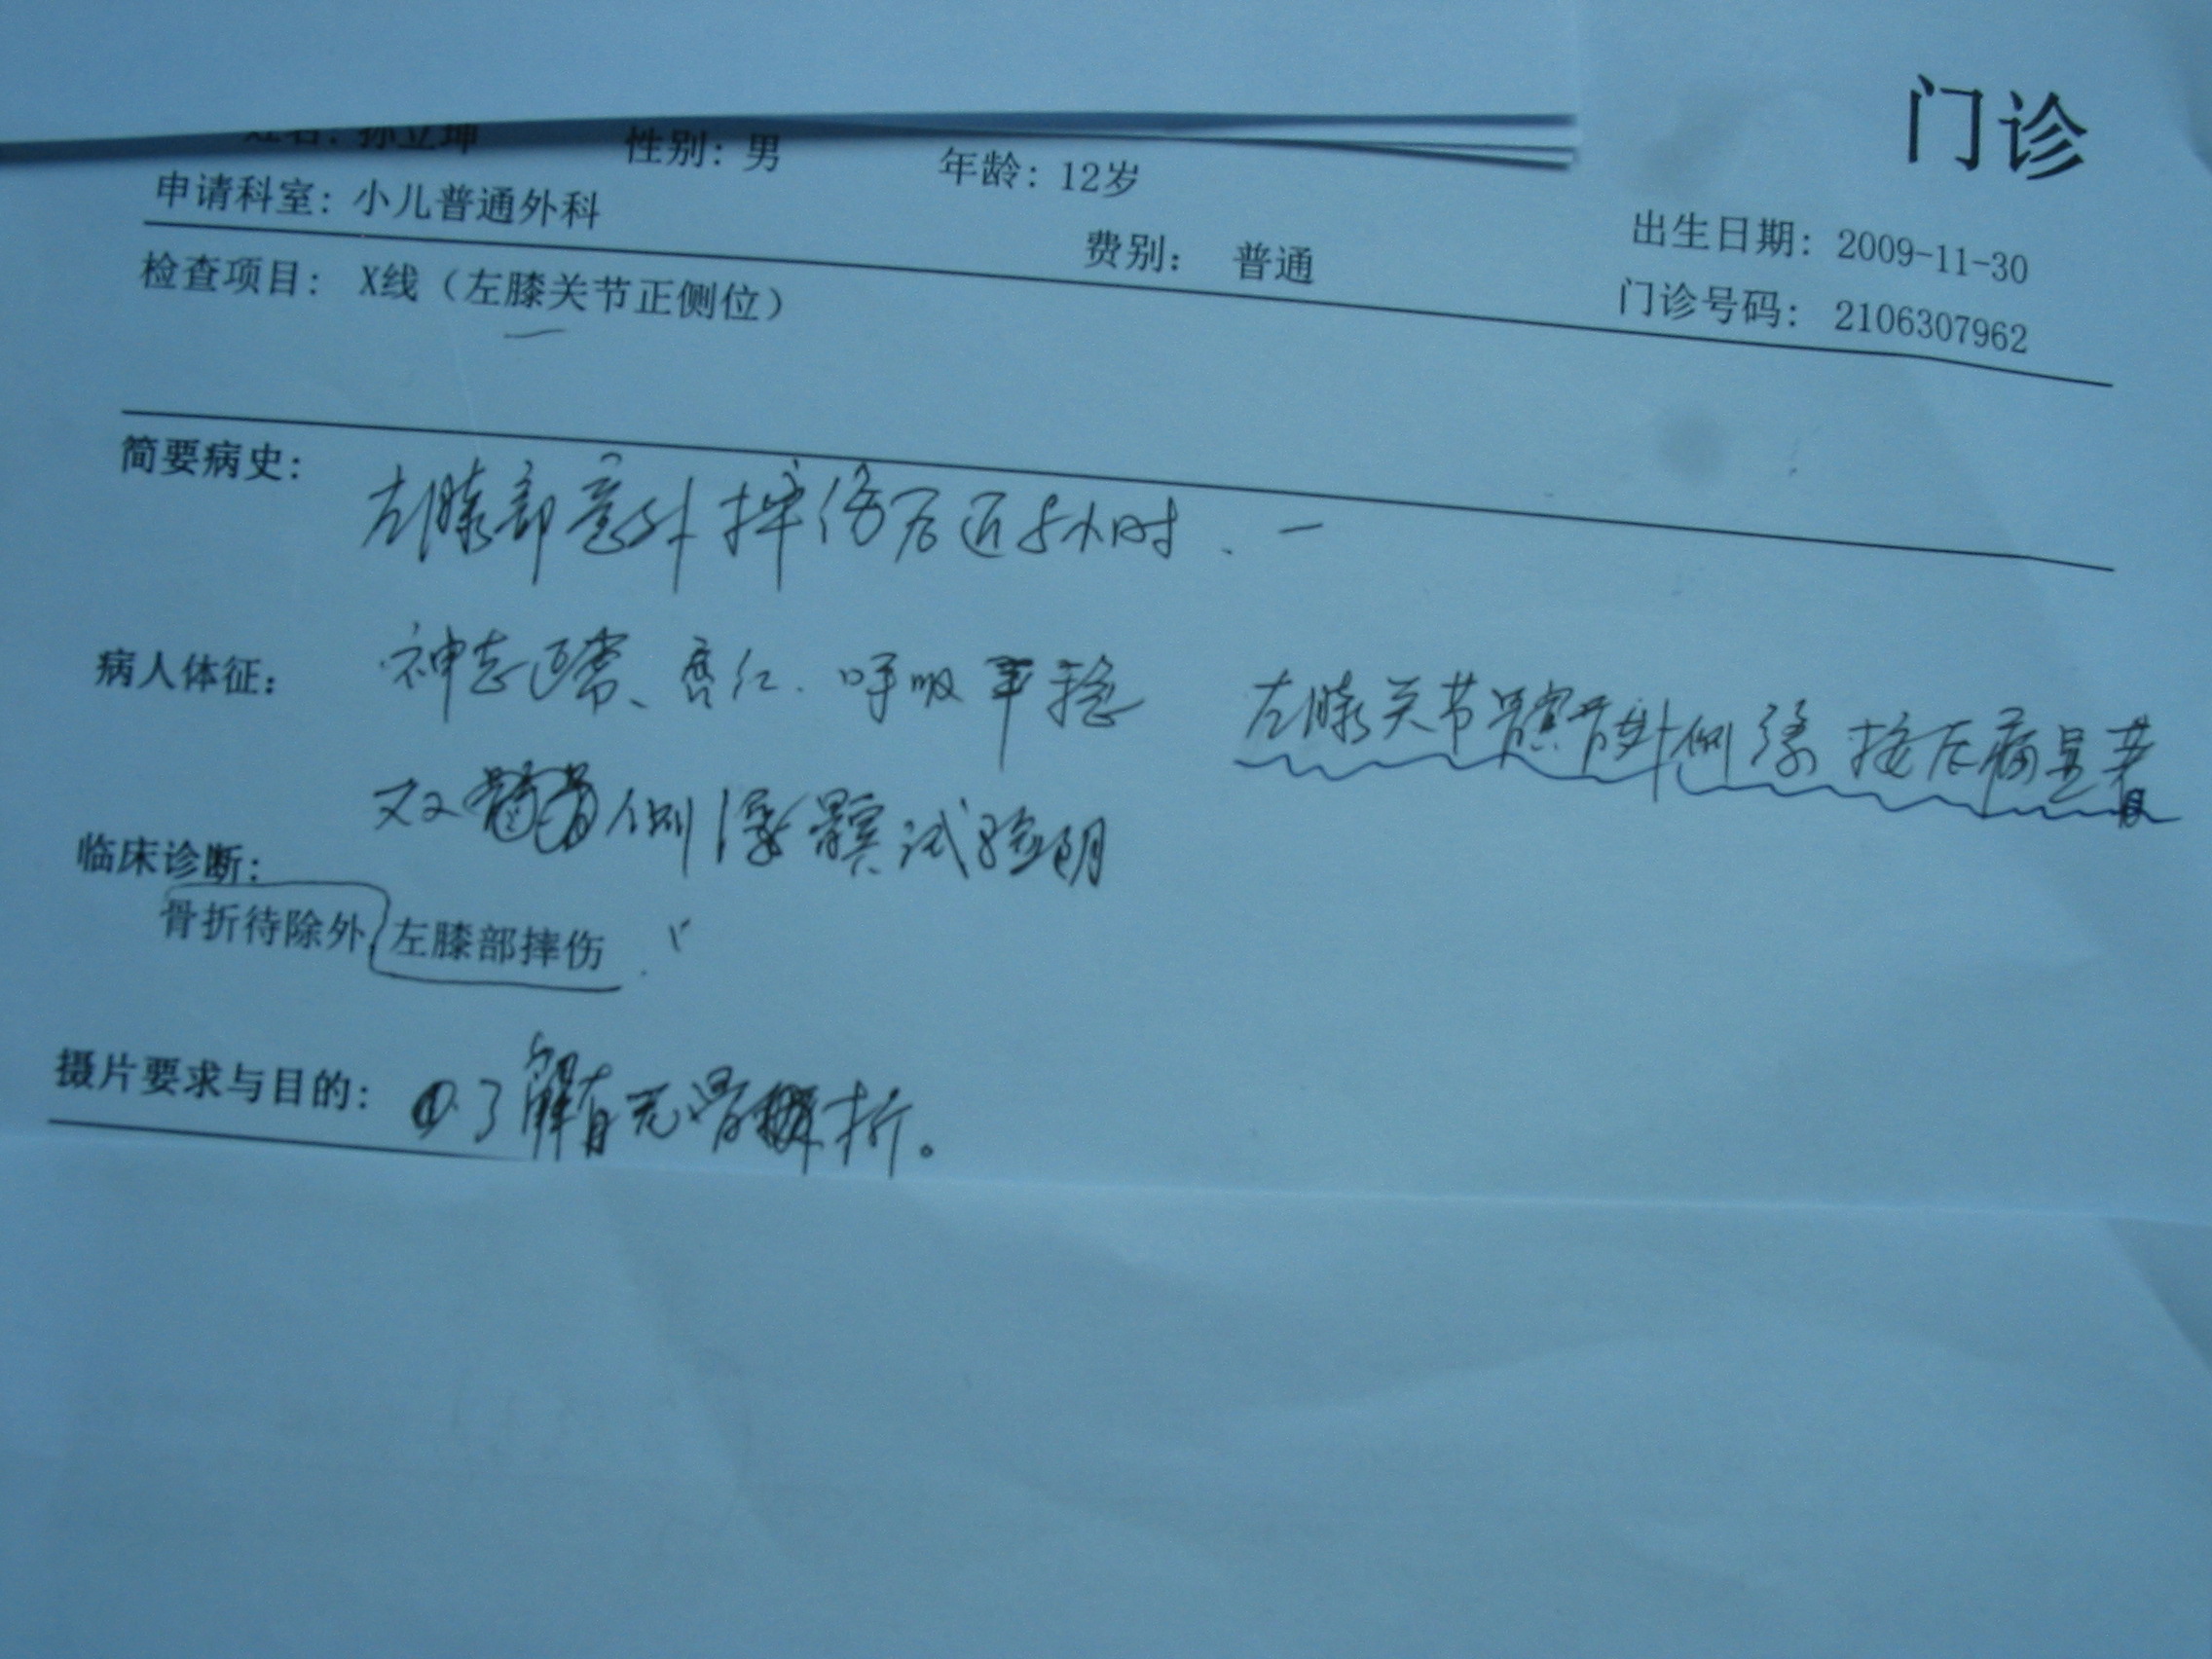 门诊
姓名: 孙立坤 性别: 男 年龄: 12岁 出生日期: 2009-11-30
申请科室: 小儿普通外科 费别: 普通 门诊号码: 2106307962
检查项目: X线（左膝关节正侧位）
简要病史: 左膝部意外摔伤后近5小时.
病人体征: 神志正常、唇红. 呼吸平稳 左膝关节髌骨外侧缘按压痛显著
双侧浮髌试验阴
临床诊断:
骨折待除外 左膝部摔伤
摄片要求与目的: ①.了解有无骨折。